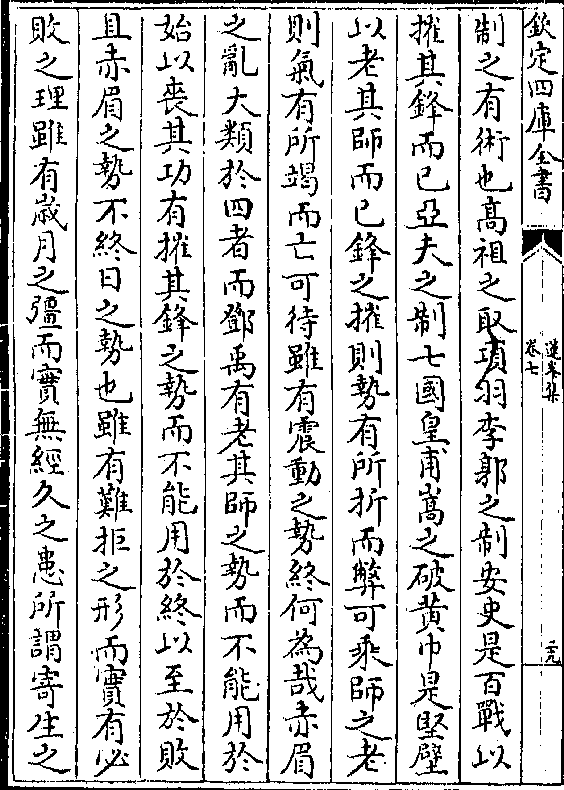 欽定四庫全書
蓮峯集
卷七
二九
制之有術也高祖之取項羽李郭之制安史是百戰以
摧其鋒而已亞夫之制七國皇甫嵩之破黄巾是堅壁
以老其師而已鋒之摧則勢有所折而弊可乘師之老
則氣有所竭而亡可待雖有震動之勢終何為哉赤眉
之亂大類於四者而鄧禹有老其師之勢而不能用於
始以喪其功有摧其鋒之勢而不能用於終以至於敗
且赤眉之勢不終日之勢也雖有難拒之形而實有必
敗之理雖有歲月之彊而實無經久之患所謂寄生之